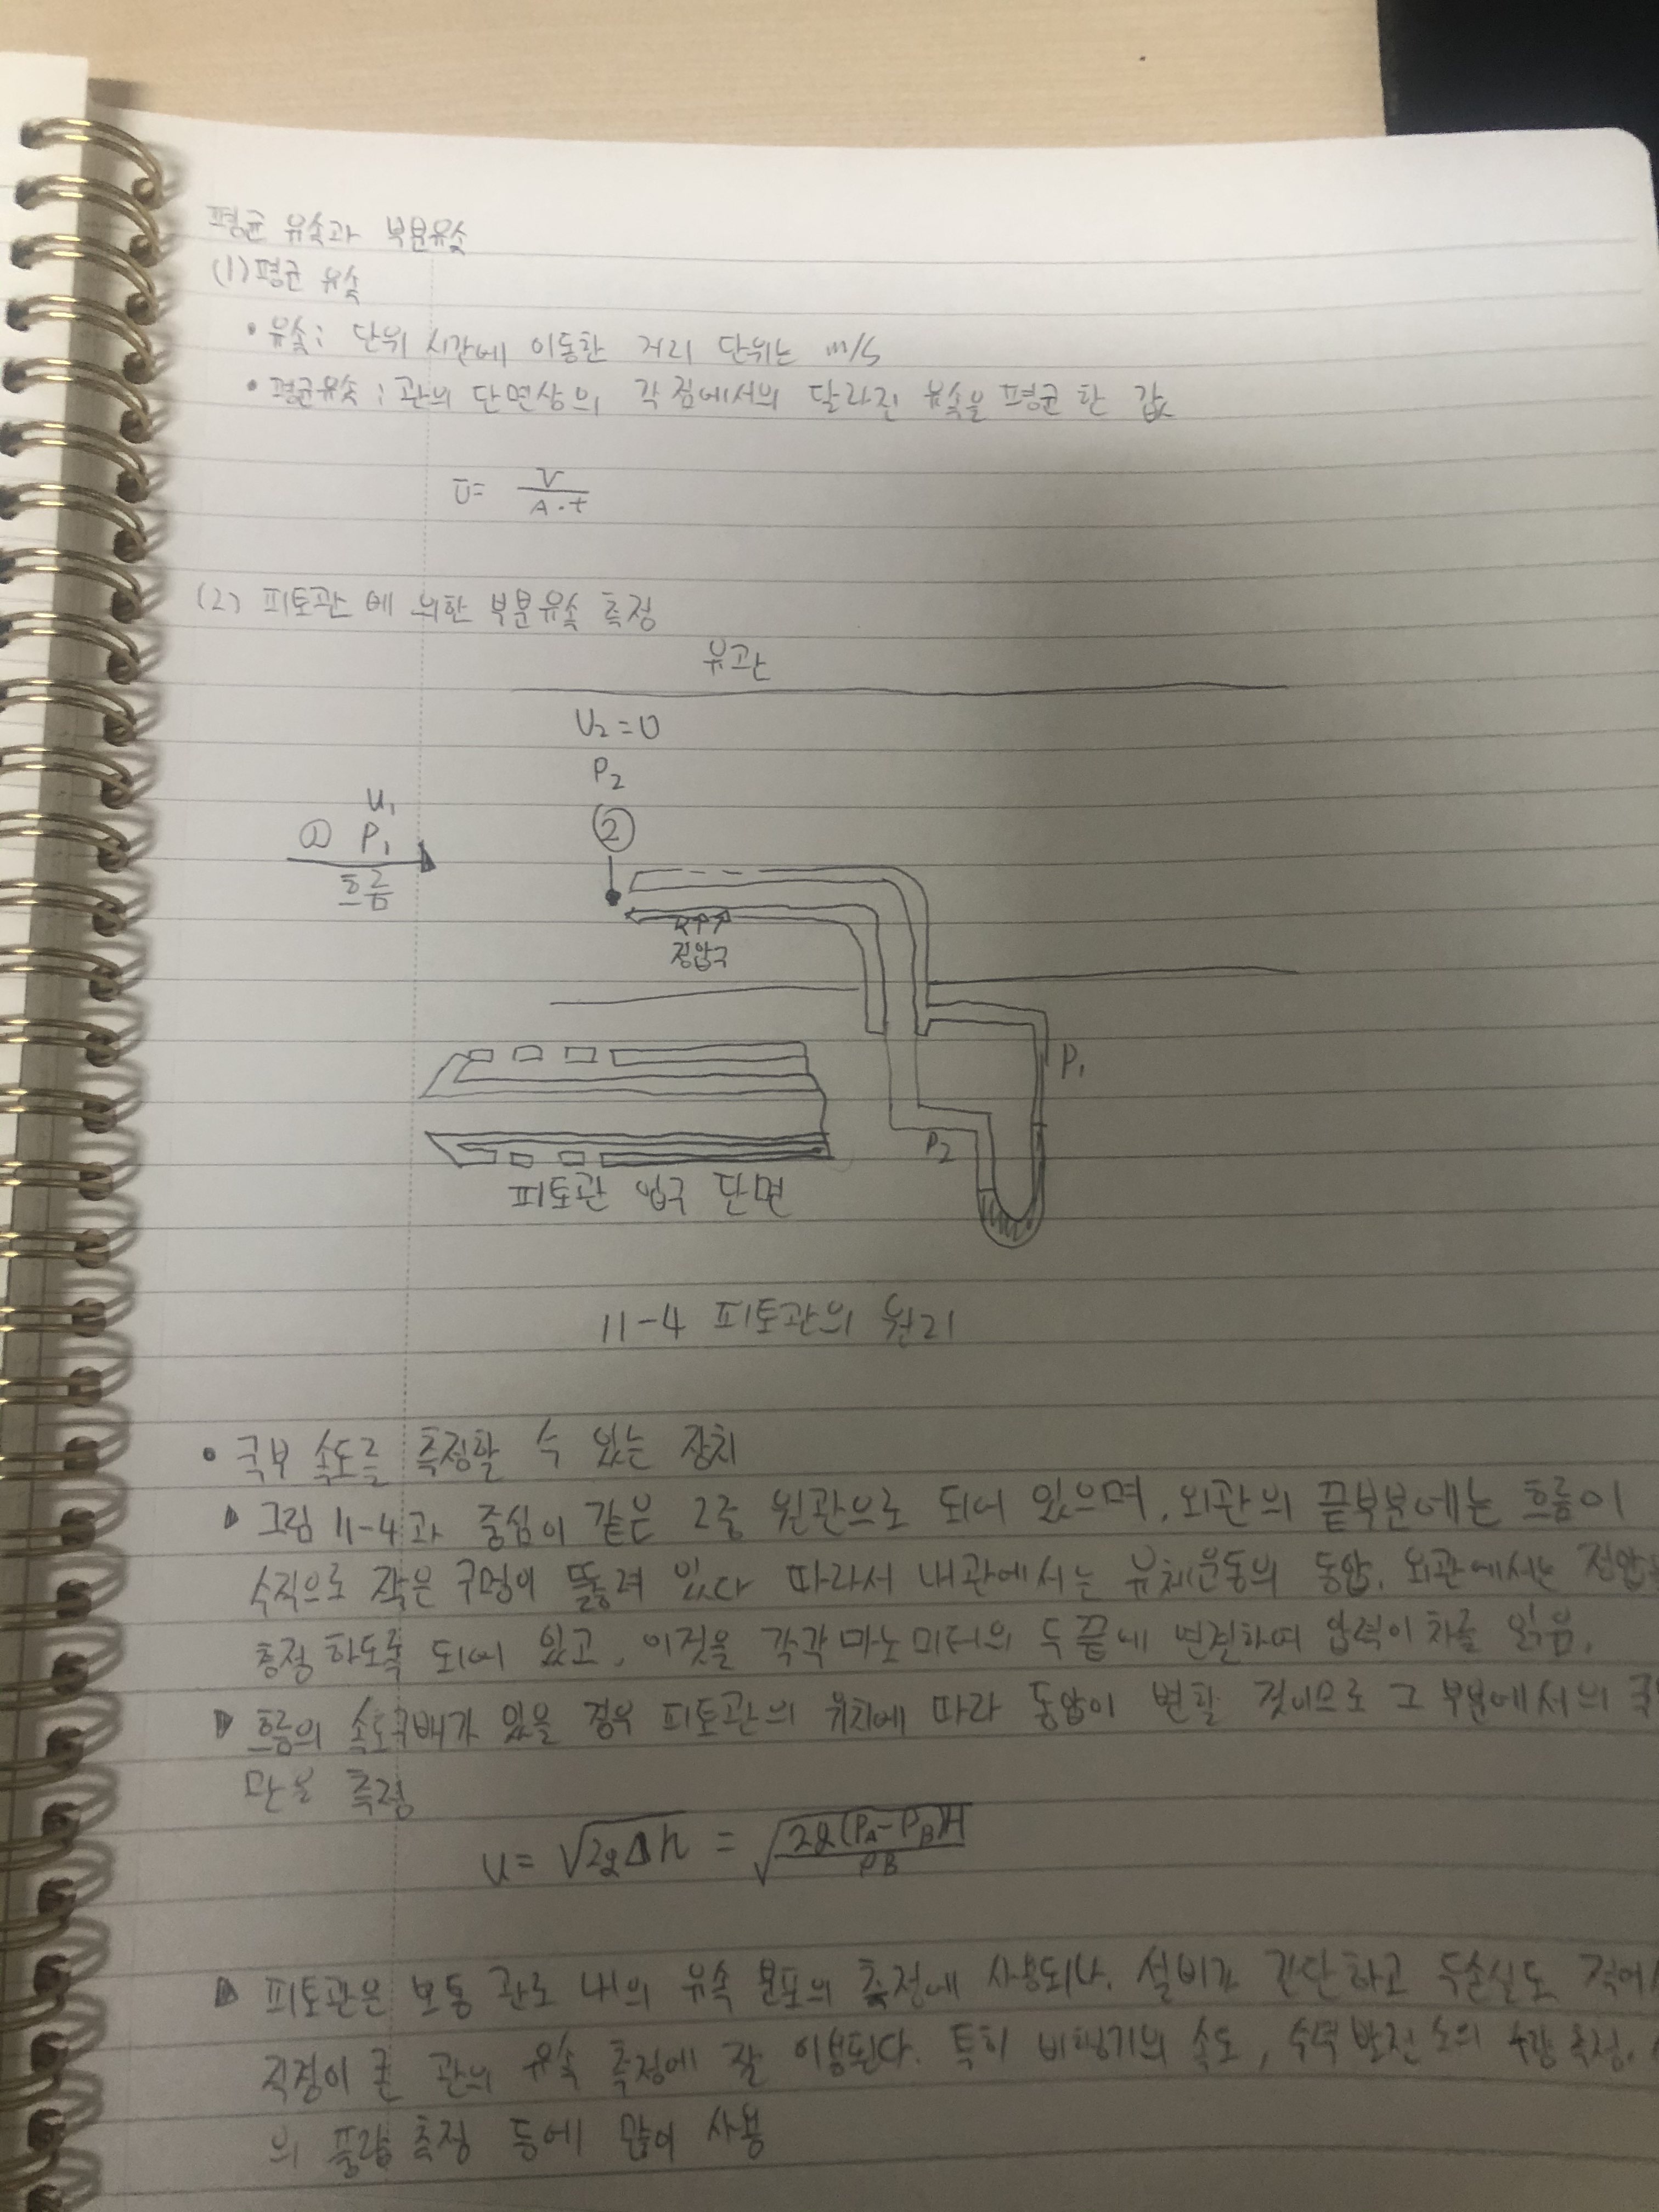 평균 유속과 부분유속
(1) 평균 유속
• 유속: 단위 시간에 이동한 거리 단위는 m/s
• 평균유속: 관의 단면상의 각 점에서의 달라진 유속을 평균 한 값
ū = V / A·t
(2) 피토관에 의한 부분유속 측정
유관
U₂=0
P₂
②
U₁
① P₁
흐름
정압구
P₁
P₂
피토관 입구 단면
11-4 피토관의 원리
• 국부 속도를 측정할 수 있는 장치
▶ 그림 11-4과 중심이 같은 2중 원관으로 되어 있으며, 외관의 끝부분에는 흐름이
수직으로 작은 구멍이 뚫려 있다 따라서 내관에서는 유체운동의 동압, 외관에서는 정압
측정 하도록 되어 있고, 이것을 각각 마노미터의 두 끝에 연결하여 압력이 차를 읽음.
▶ 흐름의 속도구배가 있을 경우 피토관의 위치에 따라 동압이 변할 것이므로 그 부분에서의
만을 측정
u = √2gΔh = √2g(ρA-ρB)H / ρB
▶ 피토관은 보통 관로 내의 유속 분포의 측정에 사용되나, 설비가 간단하고 두손실도 적어
직경이 큰 관의 유속 측정에 잘 이용된다. 특히 비행기의 속도, 수력 발전소의 수량 측정,
의 풍량 측정 등에 많이 사용